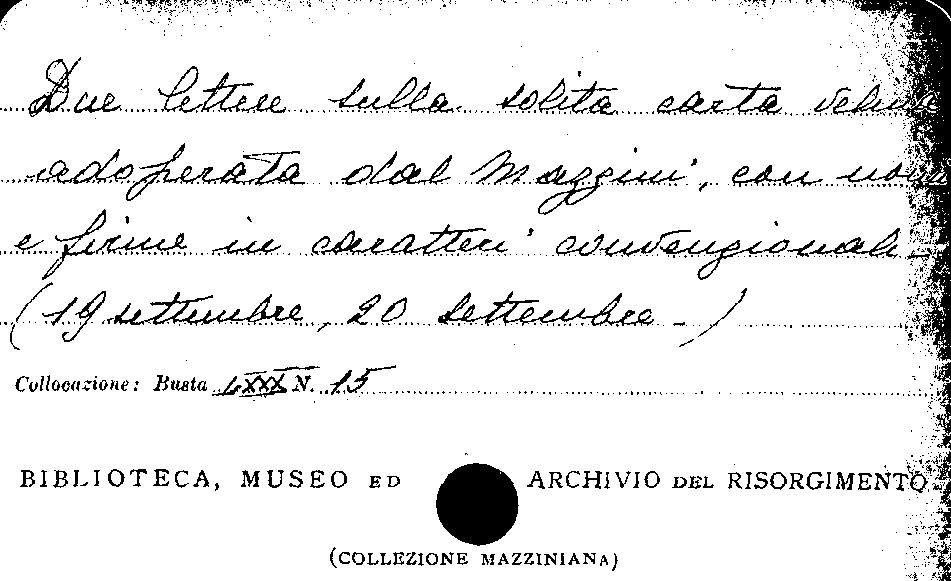 Due lettere sulla solita carta velina
adoperata dal Mazzini, con nomi
e firme in caratteri convenzionali -
(19 settembre, 20 settembre -)
Collocazione: Busta LXXX N. 15
BIBLIOTECA, MUSEO ED ARCHIVIO DEL RISORGIMENTO
(COLLEZIONE MAZZINIANA)